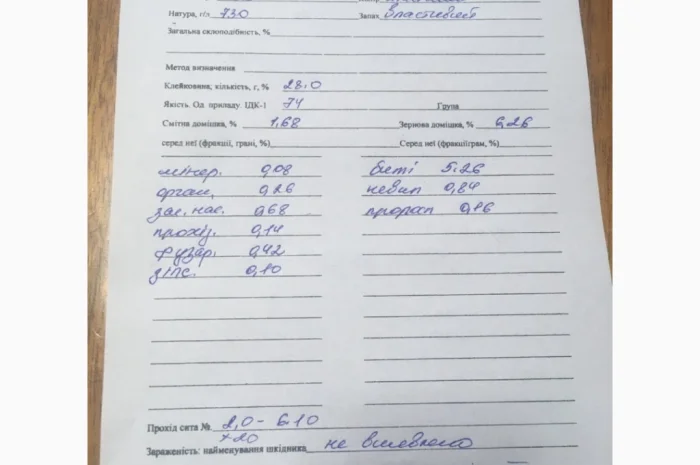 Натура, г/л 730 Запах властивий
Загальна склоподібність, %
Метод визначення
Клейковина; кількість, г, % 28.0
Якість. Од. приладу. ІДК-1 74 Група
Смітна домішка, % 1,68 Зернова домішка, % 6,26
серед неї (фракції, грані, %) Серед неї (фракції/грам, %)
мінер. 0,08 биті 5.26
орган. 0,26 невип 0,84
зас. нас. 0,68 пророп 0,16
прохід. 0,14
Фузар. 0,42
зіпс. 0,10
Прохід сита № 2,0 - 6.10
×20
Зараженість: найменування шкідника не виявлено